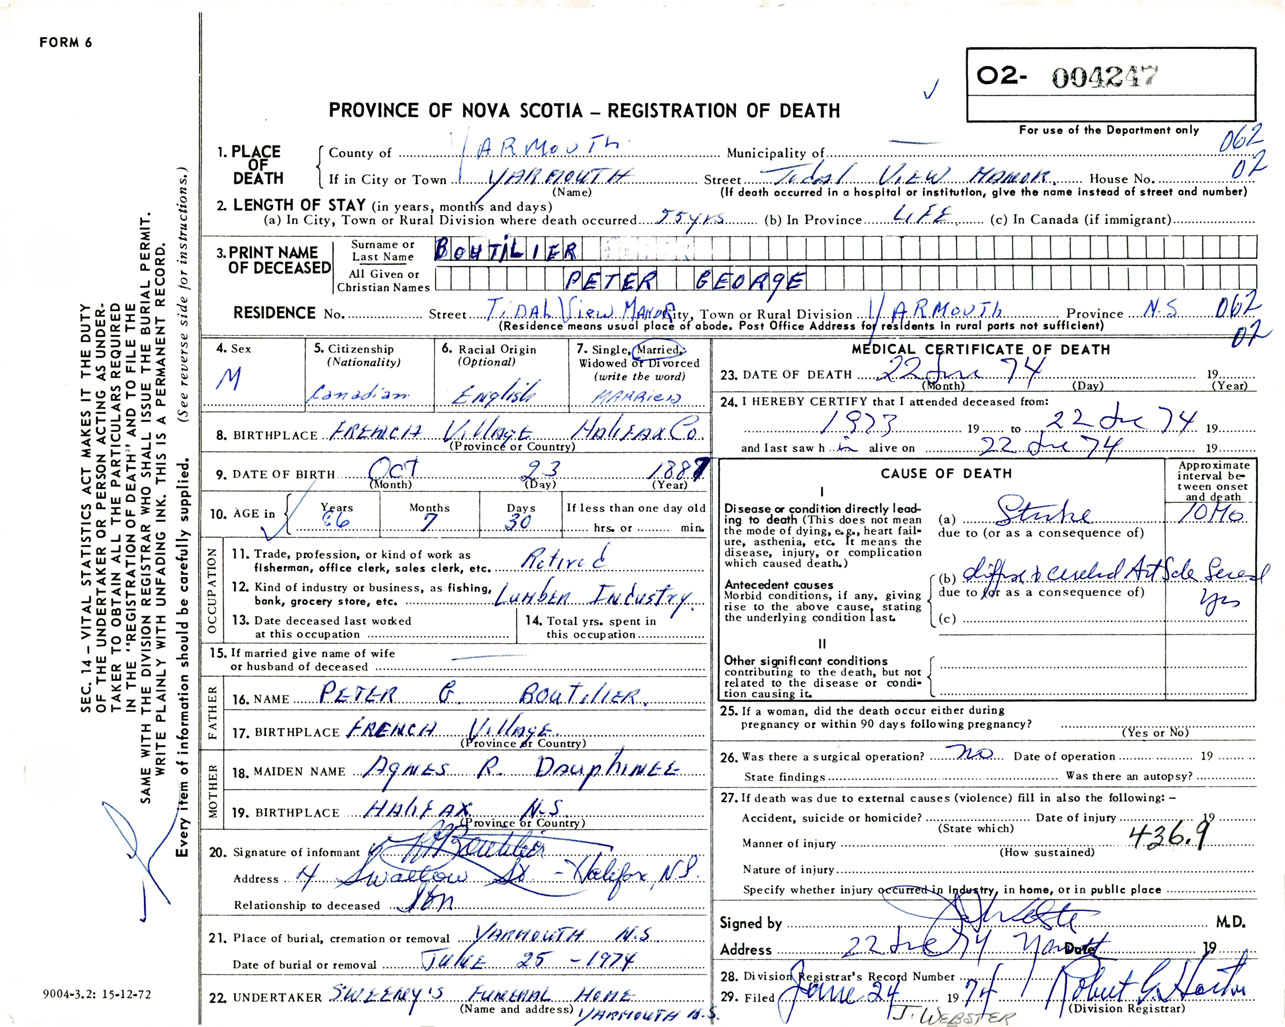 FORM 6
O2- 004247
PROVINCE OF NOVA SCOTIA – REGISTRATION OF DEATH
For use of the Department only
062
02
1. PLACE OF DEATH
County of YARMOUTH Municipality of —
If in City or Town YARMOUTH Street Tidal View Manor. House No.
(Name) (If death occurred in a hospital or institution, give the name instead of street and number)
2. LENGTH OF STAY (in years, months and days)
(a) In City, Town or Rural Division where death occurred 55 yrs (b) In Province LIFE (c) In Canada (if immigrant)
3. PRINT NAME OF DECEASED
Surname or Last Name BOUTILIER
All Given or Christian Names PETER GEORGE
RESIDENCE No. Street TIDAL VIEW MANOR City, Town or Rural Division YARMOUTH Province N.S 062
(Residence means usual place of abode. Post Office Address for residents in rural parts not sufficient) 02
4. Sex M
5. Citizenship (Nationality) Canadian
6. Racial Origin (Optional) English
7. Single, Married, Widowed or Divorced (write the word) MARRIED
8. BIRTHPLACE FRENCH Village HALIFAX Co
(Province or Country)
9. DATE OF BIRTH OCT 23 1887
(Month) (Day) (Year)
10. AGE in Years 86 Months 7 Days 30 If less than one day old hrs. or min.
OCCUPATION
11. Trade, profession, or kind of work as fisherman, office clerk, sales clerk, etc. Retired
12. Kind of industry or business, as fishing, bank, grocery store, etc. LUMBER INDUSTRY.
13. Date deceased last worked at this occupation
14. Total yrs. spent in this occupation
15. If married give name of wife or husband of deceased —
FATHER
16. NAME PETER G. BOUTILIER.
17. BIRTHPLACE FRENCH Village
(Province or Country)
MOTHER
18. MAIDEN NAME AGNES R. DAUPHINEE
19. BIRTHPLACE HALIFAX N.S.
(Province or Country)
20. Signature of informant Boutilier
Address 4 Swallow St - Halifax, N.S.
Relationship to deceased Son
21. Place of burial, cremation or removal YARMOUTH N.S.
Date of burial or removal JUNE 25 - 1974
22. UNDERTAKER SWEENY'S FUNERAL HOME
(Name and address) YARMOUTH N.S.
MEDICAL CERTIFICATE OF DEATH
23. DATE OF DEATH 22 June 74 19
(Month) (Day) (Year)
24. I HEREBY CERTIFY that I attended deceased from:
1973 19 to 22 June 74 19
and last saw h im alive on 22 June 74 19
CAUSE OF DEATH
Approximate interval between onset and death
I
Disease or condition directly leading to death (This does not mean the mode of dying, e.g., heart failure, asthenia, etc. It means the disease, injury, or complication which caused death.)
(a) Stroke 10 Mo
due to (or as a consequence of)
Antecedent causes
Morbid conditions, if any, giving rise to the above cause, stating the underlying condition last.
(b) diffuse & cerebral Art Scle Several yrs
due to (or as a consequence of)
(c)
II
Other significant conditions contributing to the death, but not related to the disease or condition causing it.
25. If a woman, did the death occur either during pregnancy or within 90 days following pregnancy?
(Yes or No)
26. Was there a surgical operation? No Date of operation 19
State findings Was there an autopsy?
27. If death was due to external causes (violence) fill in also the following: –
Accident, suicide or homicide? Date of injury 19
(State which) 436.9
Manner of injury
(How sustained)
Nature of injury
Specify whether injury occurred in industry, in home, or in public place
Signed by M.D.
Address 22 June 74 Yarmouth Date 19
28. Division Registrar's Record Number
29. Filed June 24 1974 Robert G. Horton
(Division Registrar)
J. WEBSTER
SEC. 14 – VITAL STATISTICS ACT MAKES IT THE DUTY
OF THE UNDERTAKER OR PERSON ACTING AS UNDER-
TAKER TO OBTAIN ALL THE PARTICULARS REQUIRED
IN THE "REGISTRATION OF DEATH" AND TO FILE THE
SAME WITH THE DIVISION REGISTRAR WHO SHALL ISSUE THE BURIAL PERMIT.
WRITE PLAINLY WITH UNFADING INK. THIS IS A PERMANENT RECORD.
Every item of information should be carefully supplied. (See reverse side for instructions.)
9004-3.2: 15-12-72